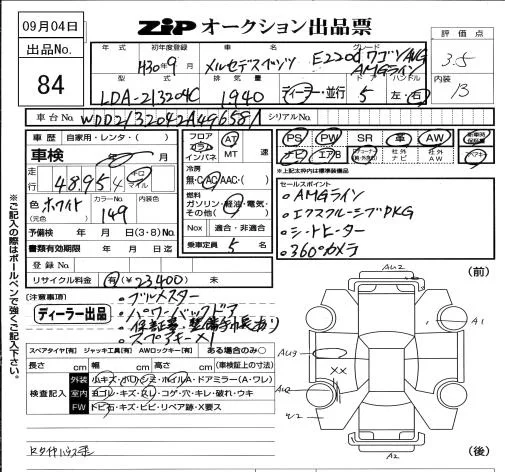 09月04日
ZIP オークション出品票
評価点
3.5
内装
B
出品No.
84
年式
初年度登録
H30年9月
車名
メルセデスベンツ
グレード
E220d ワゴンAVG
AMGライン
型式
LDA-213204C
排気量
1940
ディーラー・並行
ドア
5
ハンドル
左・右
車台No.
WDD2132042A496581
シリアルNo.
車歴 自家用・レンタ・( )
車検 年 月
走行
48,954
キロ
マイル
色
(元色)
ホワイト
カラーNo.
149
内装色
予備検 年 月 日(3・8) No.
書類有効期限 年 月 日迄
登録No.
リサイクル料金 有(¥23400) 未
フロア
コラム
インパネ
AT
MT
速
冷房
無・C・AC・AAC・( )
燃料
ガソリン・軽油・電気・
その他( )
Nox 適合・非適合
乗車定員 5 名
PS
PW
SR
革
AW
ナビ
エアB
社外
ナビ
社外
AW
※上記太枠内は標準装備品
セールスポイント
・AMGライン
・エクスクルーシブPKG
・シートヒーター
・360°カメラ
(注意事項)
ディーラー出品
・ブルメスター
・パワーバックドア
・保証書・整備手帳あり
・スペアキー×1
スペアタイヤ[有] ジャッキ工具[有] AWロックキー[有] ある場合のみ○
長さ cm 幅 cm 高さ cm (車検証上の寸法)
検査記入
外装
小キズ・ホリ・シミ・ホイルA・ドアミラー(A・ワレ)
室内
ヨゴレ・キズ・スレ・コゲ・穴・キレ・破れ・ウキ
FW
トビ石・キズ・ヒビ・リペア跡・X要ス
(前)
AU2
A1
AU3
XX
A2
(後)
※ご記入の際はボールペンで強くご記入下さい。